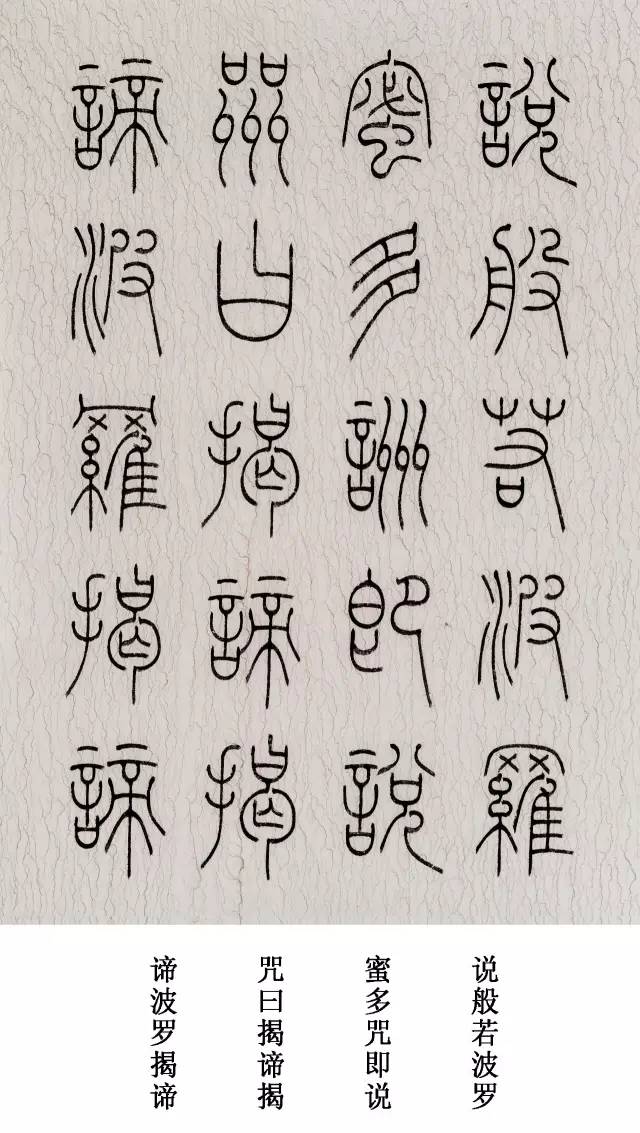 說般若波羅
蜜多詶即說
呪曰揭諦揭
諦波羅揭諦
说般若波罗
蜜多咒即说
咒曰揭谛揭
谛波罗揭谛